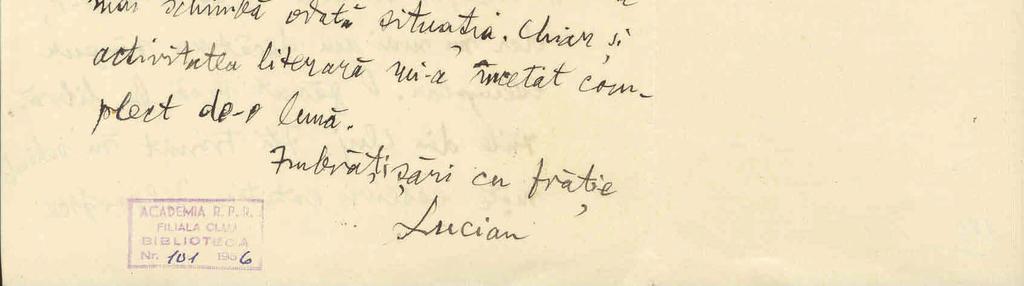 mai schimbă odată situația. Chiar și
activitatea literară mi-a încetat com-
plect de-o lună.
Imbrățișări cu frăție
Lucian
ACADEMIA R. P. R.
FILIALA CLUJ
BIBLIOTECA
Nr. 101 1956